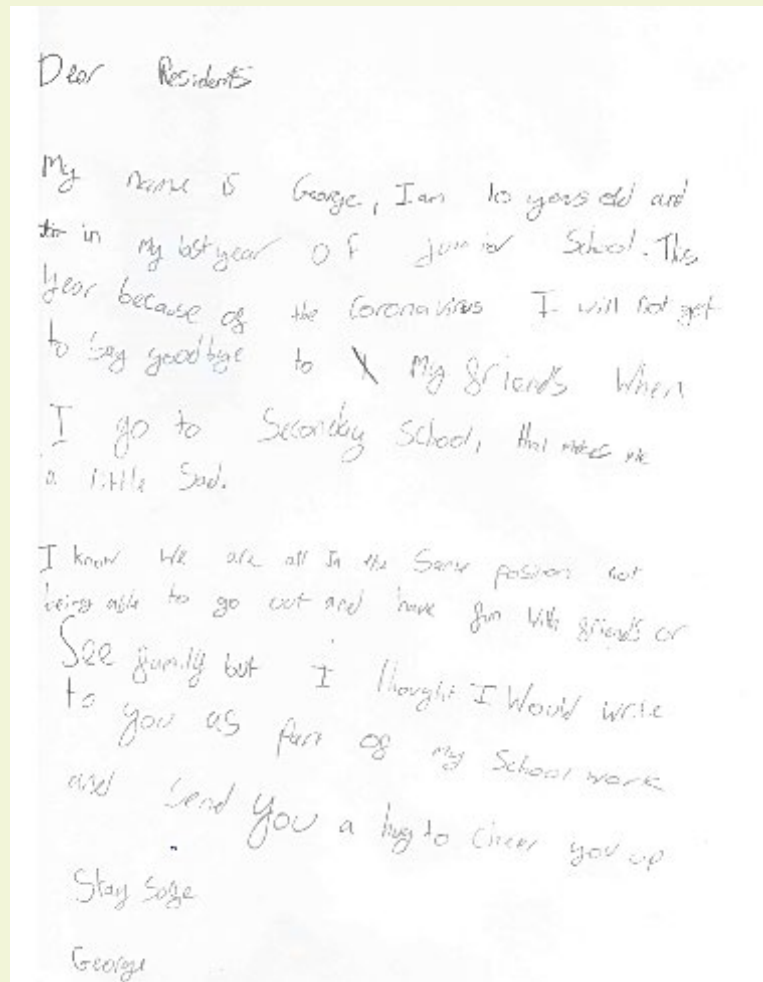 Dear Residents
My name is George, I am 10 years old and
in my last year of junior School. This
year because of the Coronavirus I will not get
to say goodbye to my friends when
I go to Seconday School, that makes me
a little Sad.
I know we are all in the Same position not
being able to go out and have fun with friends or
See family but I thought I Would write
to you as part of my School work
and Send you a hug to cheer you up
Stay Safe
George